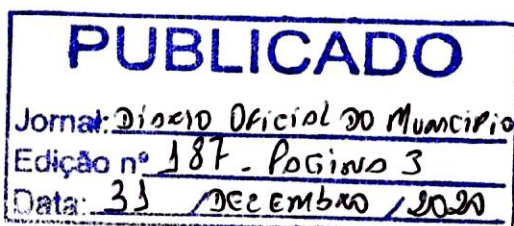 PUBLICADO
Jornal: Diário Oficial do Município
Edição nº 187 - Pagina 3
Data: 31 / DEZEMBRO / 2020